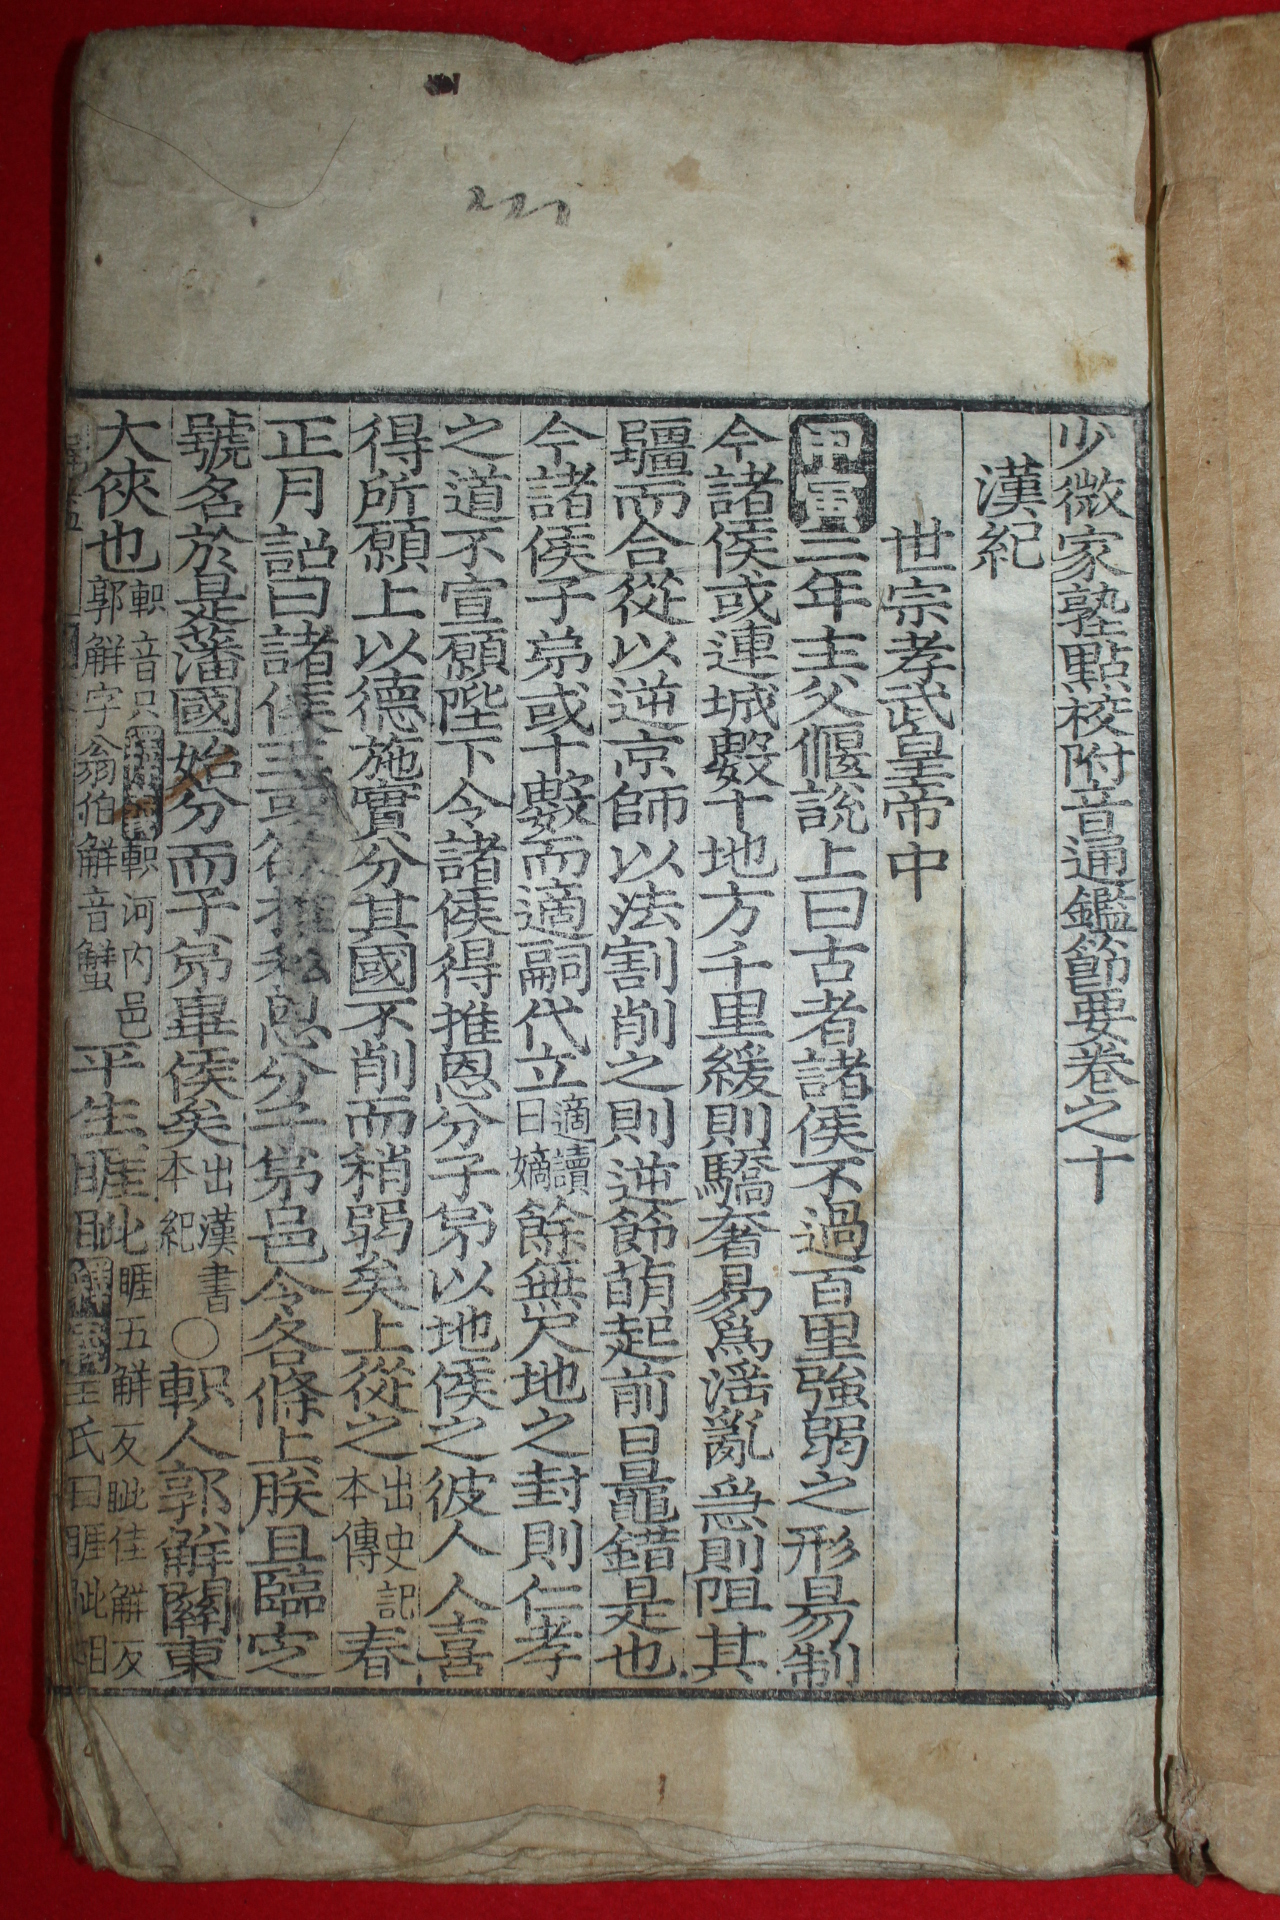 少微家塾點校附音通鑑節要卷之十
漢紀
世宗孝武皇帝中
甲寅二年主父偃說上曰古者諸侯不過百里強弱之形易制
今諸侯或連城數十地方千里緩則驕奢易爲淫亂急則阻其
疆而合從以逆京師以法割削之則逆節萌起前日鼂錯是也
今諸侯子弟或十數而適嗣代立適讀曰嫡餘無尺地之封則仁孝
之道不宣願陛下令諸侯得推恩分子弟以地侯之彼人人喜
得所願上以德施實分其國不削而稍弱矣上從之出史記本傳春
正月詔曰諸侯王或欲推私恩分子弟邑令各條上朕且臨定
號名於是藩國始分而子弟畢侯矣出漢書本紀○軹人郭解關東
大俠也軹音只釋義軹河內邑郭解字翁伯解音蟹平生睚眦睚五解反眦佳解反釋義王氏曰睚眦相